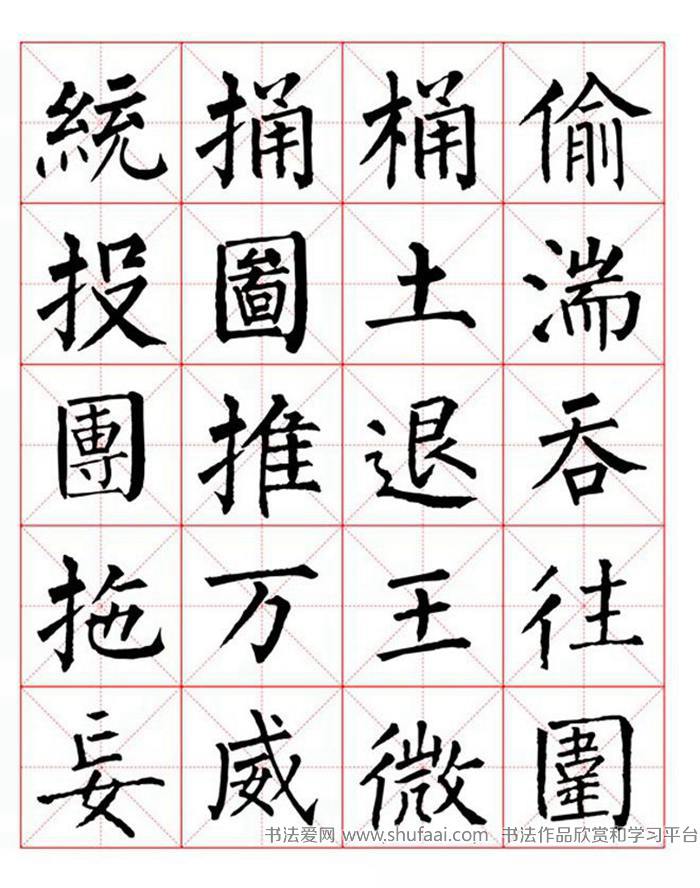 統捅桶偷
投圖土湍
團推退吞
拖万王往
妄威微圍
书法爱网 www.shufaai.com 书法作品欣赏和学习平台